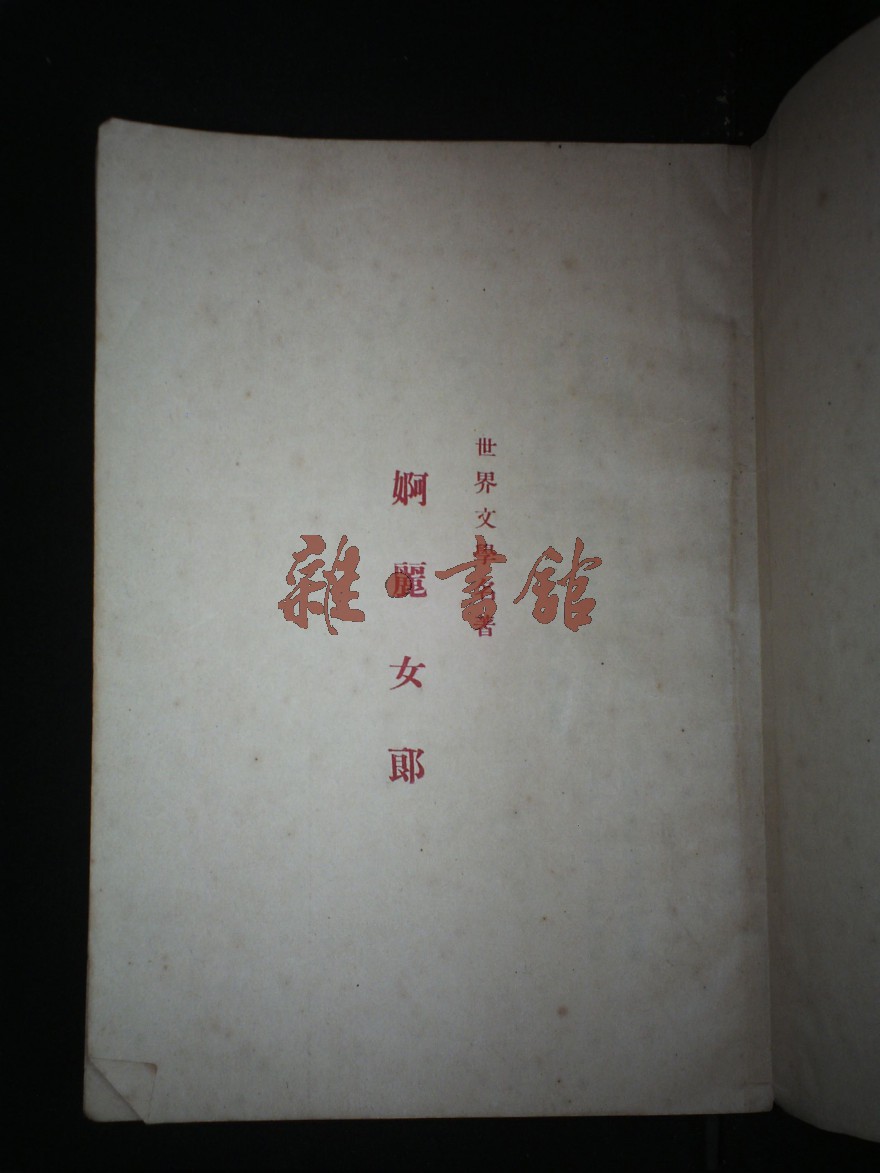 世界文學名著
婀麗女郎
雜·書館